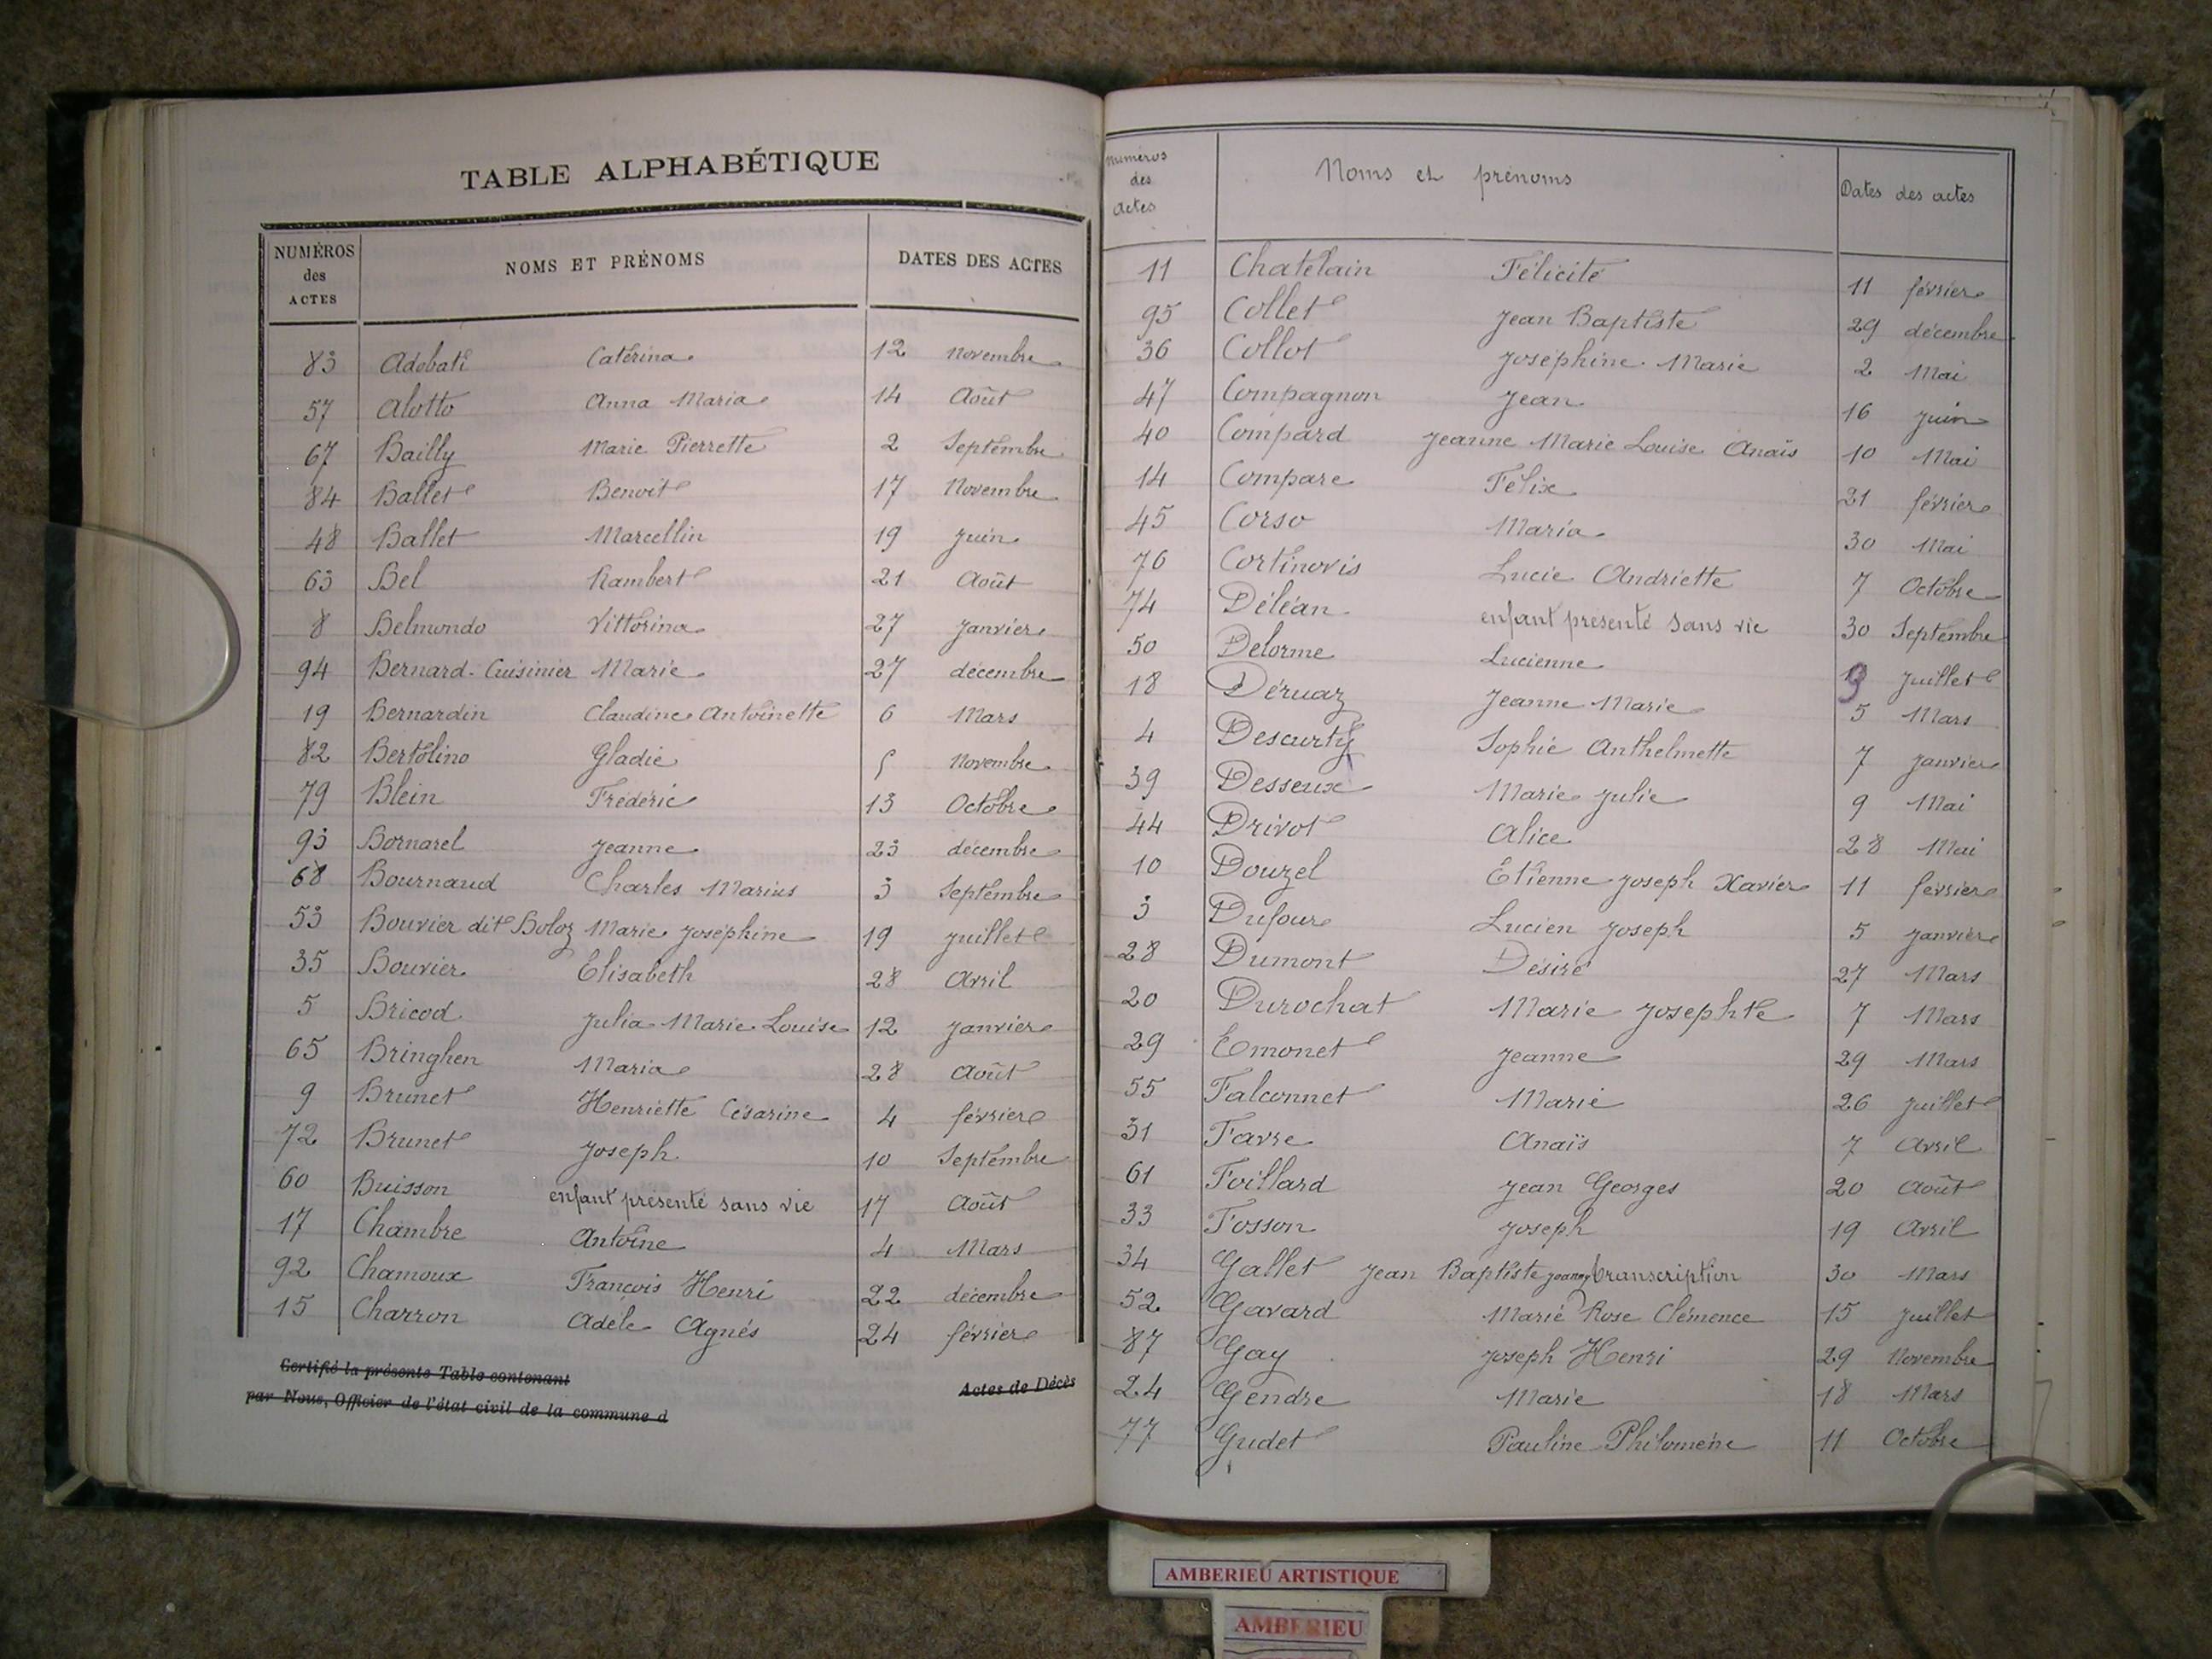 TABLE ALPHABÉTIQUE
NUMÉROS des ACTES NOMS ET PRÉNOMS DATES DES ACTES
83 Adobati Catérina 12 Novembre
57 Alotto Anna Maria 14 Août
67 Bailly Marie Pierrette 2 Septembre
84 Ballet Benoit 17 Novembre
48 Ballet Marcellin 19 Juin
63 Bel Rambert 21 Août
8 Belmondo Vittorina 27 Janvier
94 Bernard-Cuisinier Marie 27 décembre
19 Bernardin Claudine Antoinette 6 Mars
82 Bertolino Gladie 5 Novembre
79 Blein Frédéric 13 Octobre
93 Bornarel Jeanne 23 décembre
68 Bournaud Charles Marius 3 Septembre
53 Bouvier dit Boloz Marie Joséphine 19 Juillet
35 Bouvier Elisabeth 28 Avril
5 Bricod Julia Marie Louise 12 Janvier
65 Bringhen Maria 28 Août
9 Brunet Henriette Césarine 4 février
72 Brunet Joseph 10 Septembre
60 Buisson enfant présenté sans vie 17 Août
17 Chambre Antoine 4 Mars
92 Chamoux François Henri 22 décembre
15 Charron Adèle Agnés 24 février
Certifié la présente Table contenant Actes de Décès
par Nous, Officier de l'état civil de la commune d
Numéros des actes Noms et prénoms Dates des actes
11 Chatelain Félicité 11 février
95 Collet Jean Baptiste 29 décembre
36 Collot Joséphine Marie 2 Mai
47 Compagnon Jean 16 Juin
40 Compard Jeanne Marie Louise Anaïs 10 Mai
14 Compare Félix 21 février
45 Corso Maria 30 Mai
76 Cortinovis Lucie Andriette 7 Octobre
74 Déléan enfant présenté sans vie 30 Septembre
50 Delorme Lucienne 9 Juillet
18 Déruaz Jeanne Marie 5 Mars
4 Descurty Sophie Anthelmette 7 Janvier
39 Desseux Marie Julie 9 Mai
44 Drivot Alice 28 Mai
10 Douzel Etienne Joseph Xavier 11 février
3 Dufour Lucien Joseph 5 Janvier
28 Dumont Désiré 27 Mars
20 Durochat Marie Josephte 7 Mars
29 Emonet Jeanne 29 Mars
55 Falconnet Marie 26 Juillet
31 Favre Anaïs 7 Avril
61 Foillard Jean Georges 20 Août
33 Fosson Joseph 19 Avril
34 Gallet Jean Baptiste Joanny transcription 30 Mars
52 Gavard Marie Rose Clémence 15 Juillet
87 Gay Joseph Henri 29 Novembre
24 Gendre Marie 18 Mars
77 Gudet Pauline Philomène 11 Octobre
AMBERIEU ARTISTIQUE
AMBERIEU